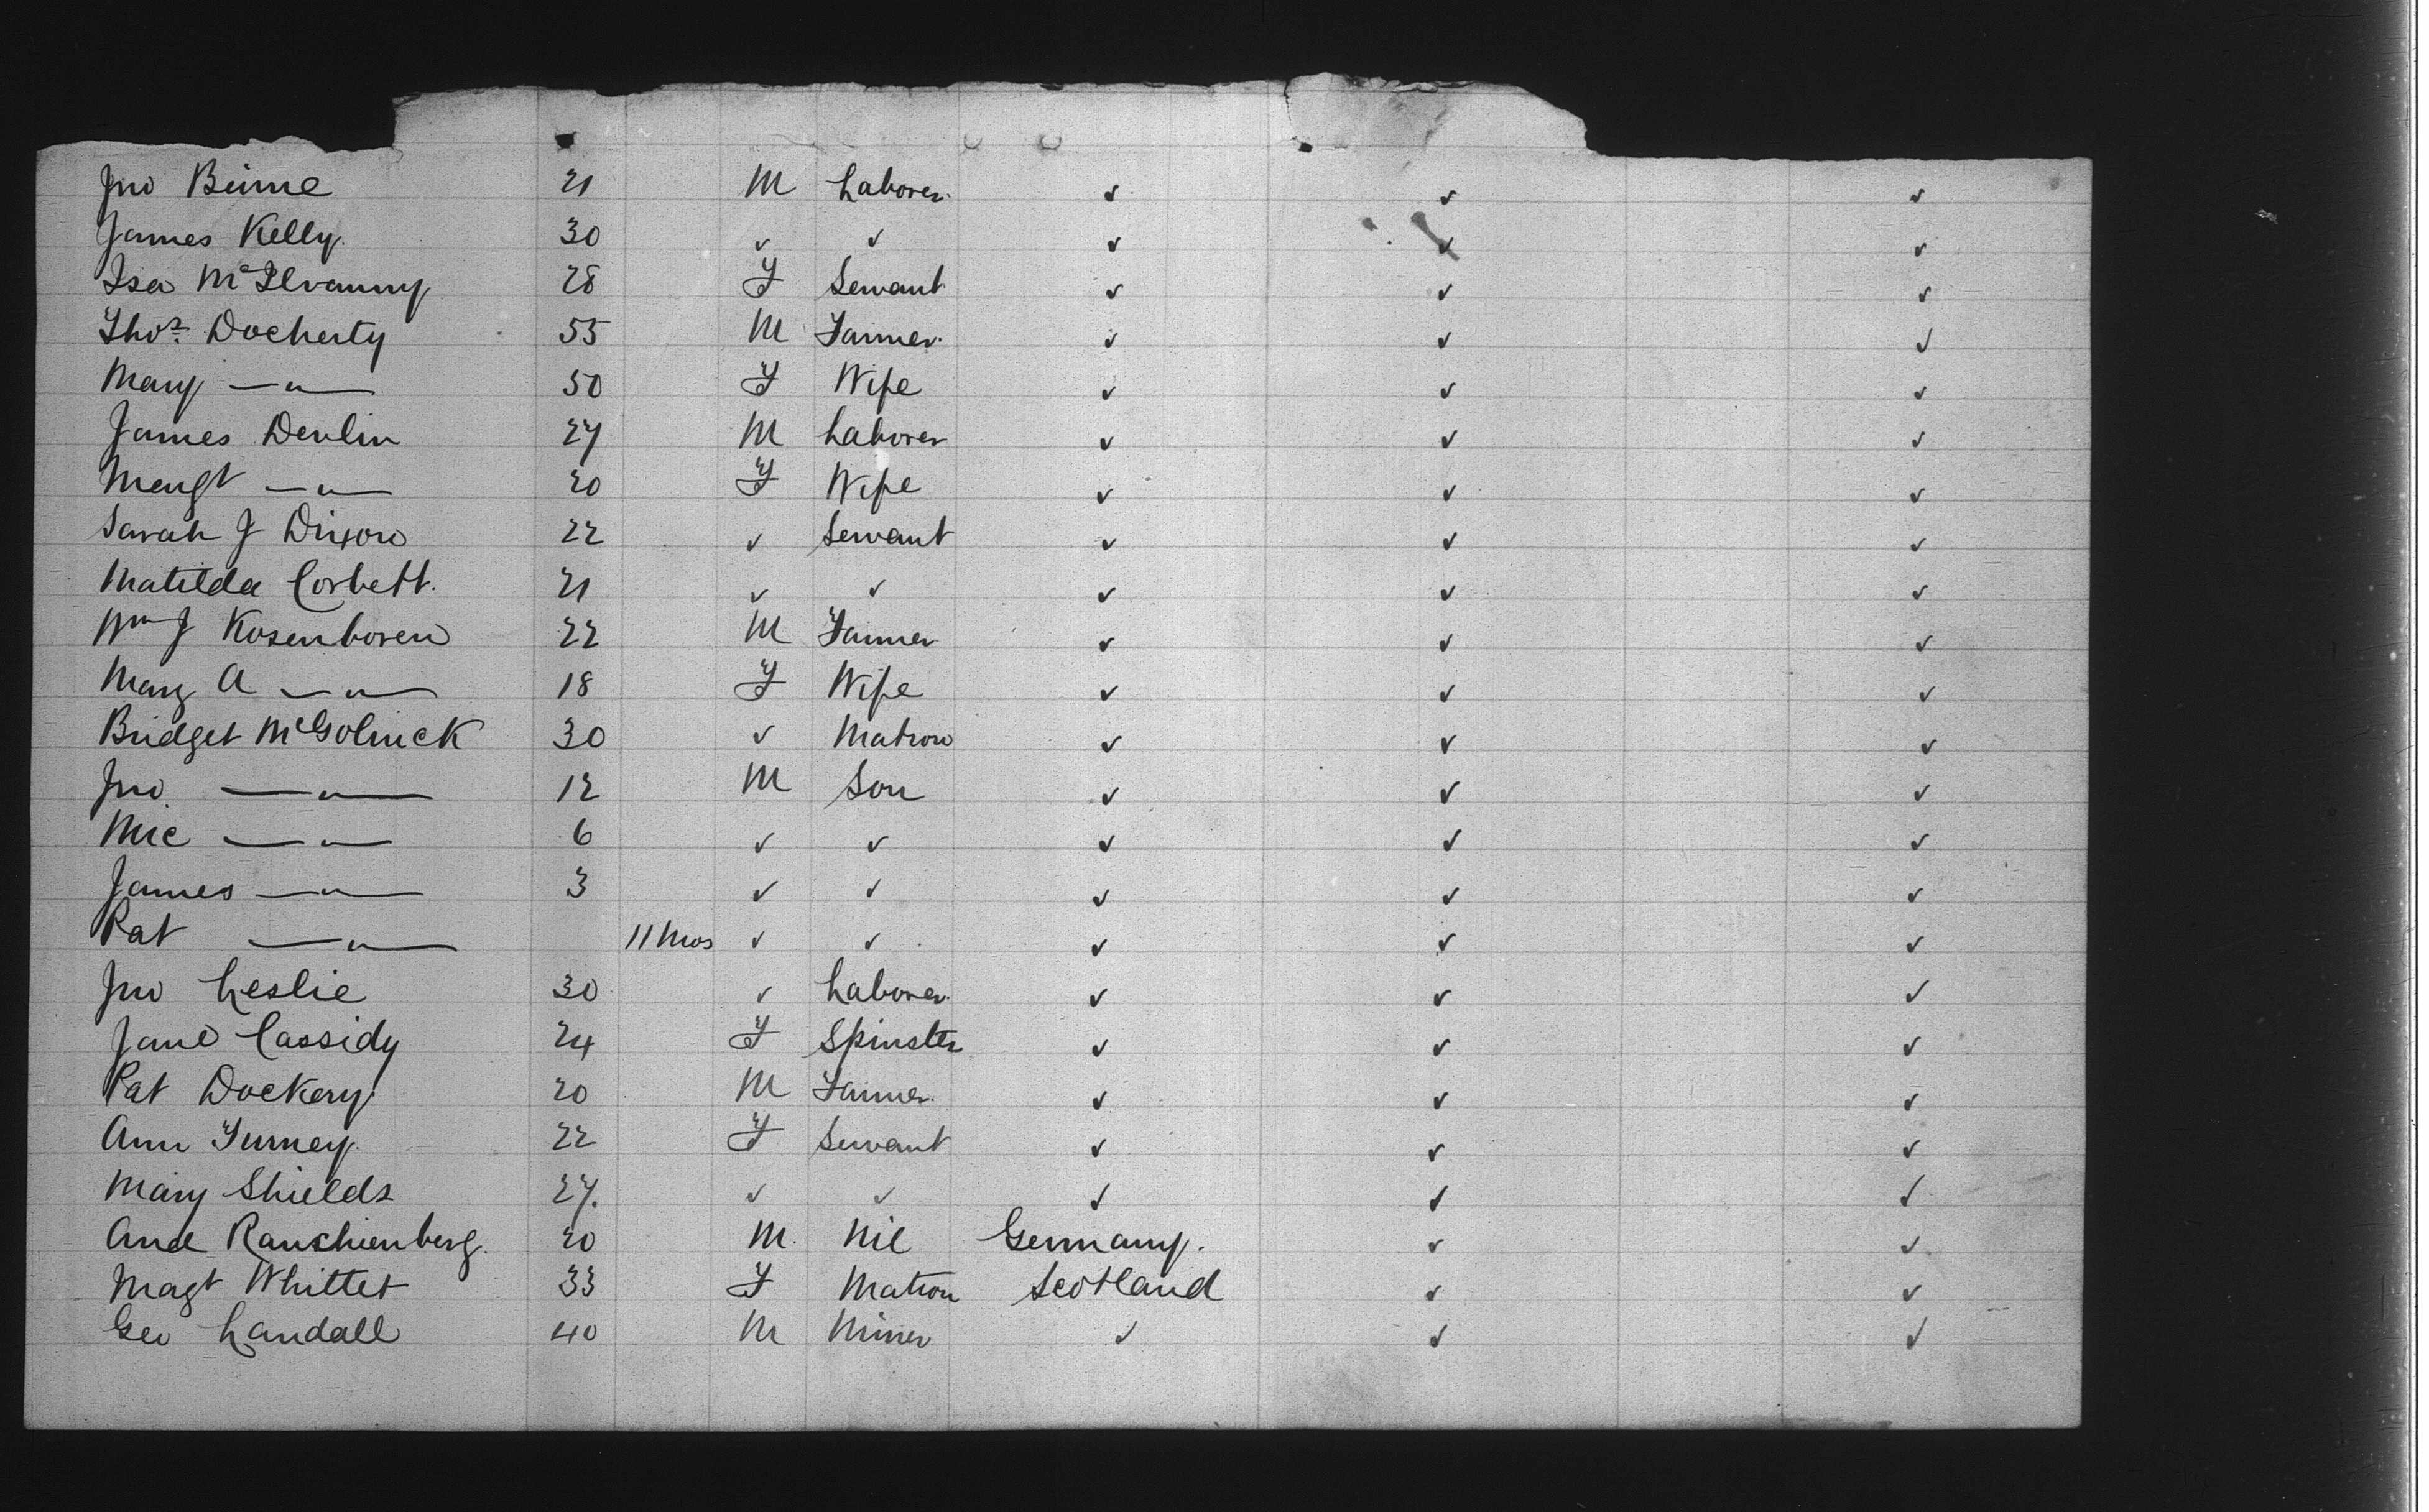 Jno Beirne 21 M Laborer ✓ ✓ ✓
James Kelly 30 ✓ ✓ ✓ ✓ ✓
Isa McIlvanny 28 F Servant ✓ ✓ ✓
Thos Docherty 55 M Farmer ✓ ✓ ✓
Mary —"— 50 F Wife ✓ ✓ ✓
James Devlin 27 M Laborer ✓ ✓ ✓
Margt —"— 20 F Wife ✓ ✓ ✓
Sarah J Dixon 22 ✓ Servant ✓ ✓ ✓
Matilda Corbett. 21 ✓ ✓ ✓ ✓ ✓
Wm J 22 M Farmer ✓ ✓ ✓
Mary A —"— 18 F Wife ✓ ✓ ✓
Bridget McGolrick 30 ✓ Matron ✓ ✓ ✓
Jno —"— 12 M Son ✓ ✓ ✓
Mic —"— 6 ✓ ✓ ✓ ✓ ✓
James —"— 3 ✓ ✓ ✓ ✓ ✓
Pat —"— 11 Mos ✓ ✓ ✓ ✓ ✓
Jno Leslie 30 ✓ Laborer ✓ ✓ ✓
Jane Cassidy 24 F Spinster ✓ ✓ ✓
Pat Dockery 20 M Farmer ✓ ✓ ✓
Ann 22 F Servant ✓ ✓ ✓
Mary Shields 27. ✓ ✓ ✓ ✓ ✓
And 20 M. Nil Germany. ✓ ✓
Magt Whittet 33 F Matron Scotland ✓ ✓
Geo Landall 40 M Miner ✓ ✓ ✓